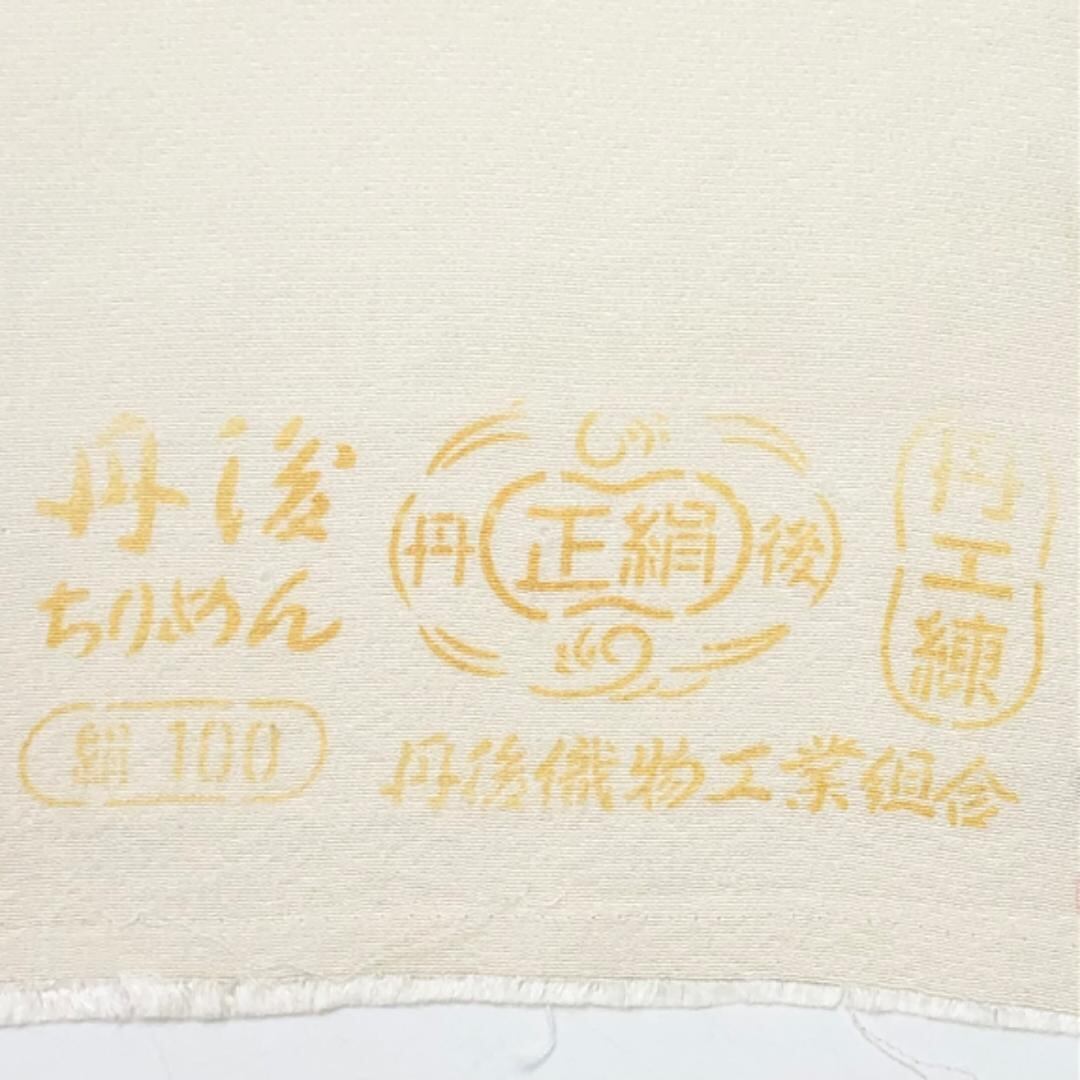 丹後
ちりめん
絹 100
丹 正絹 後
丹後織物工業組合
丹工練